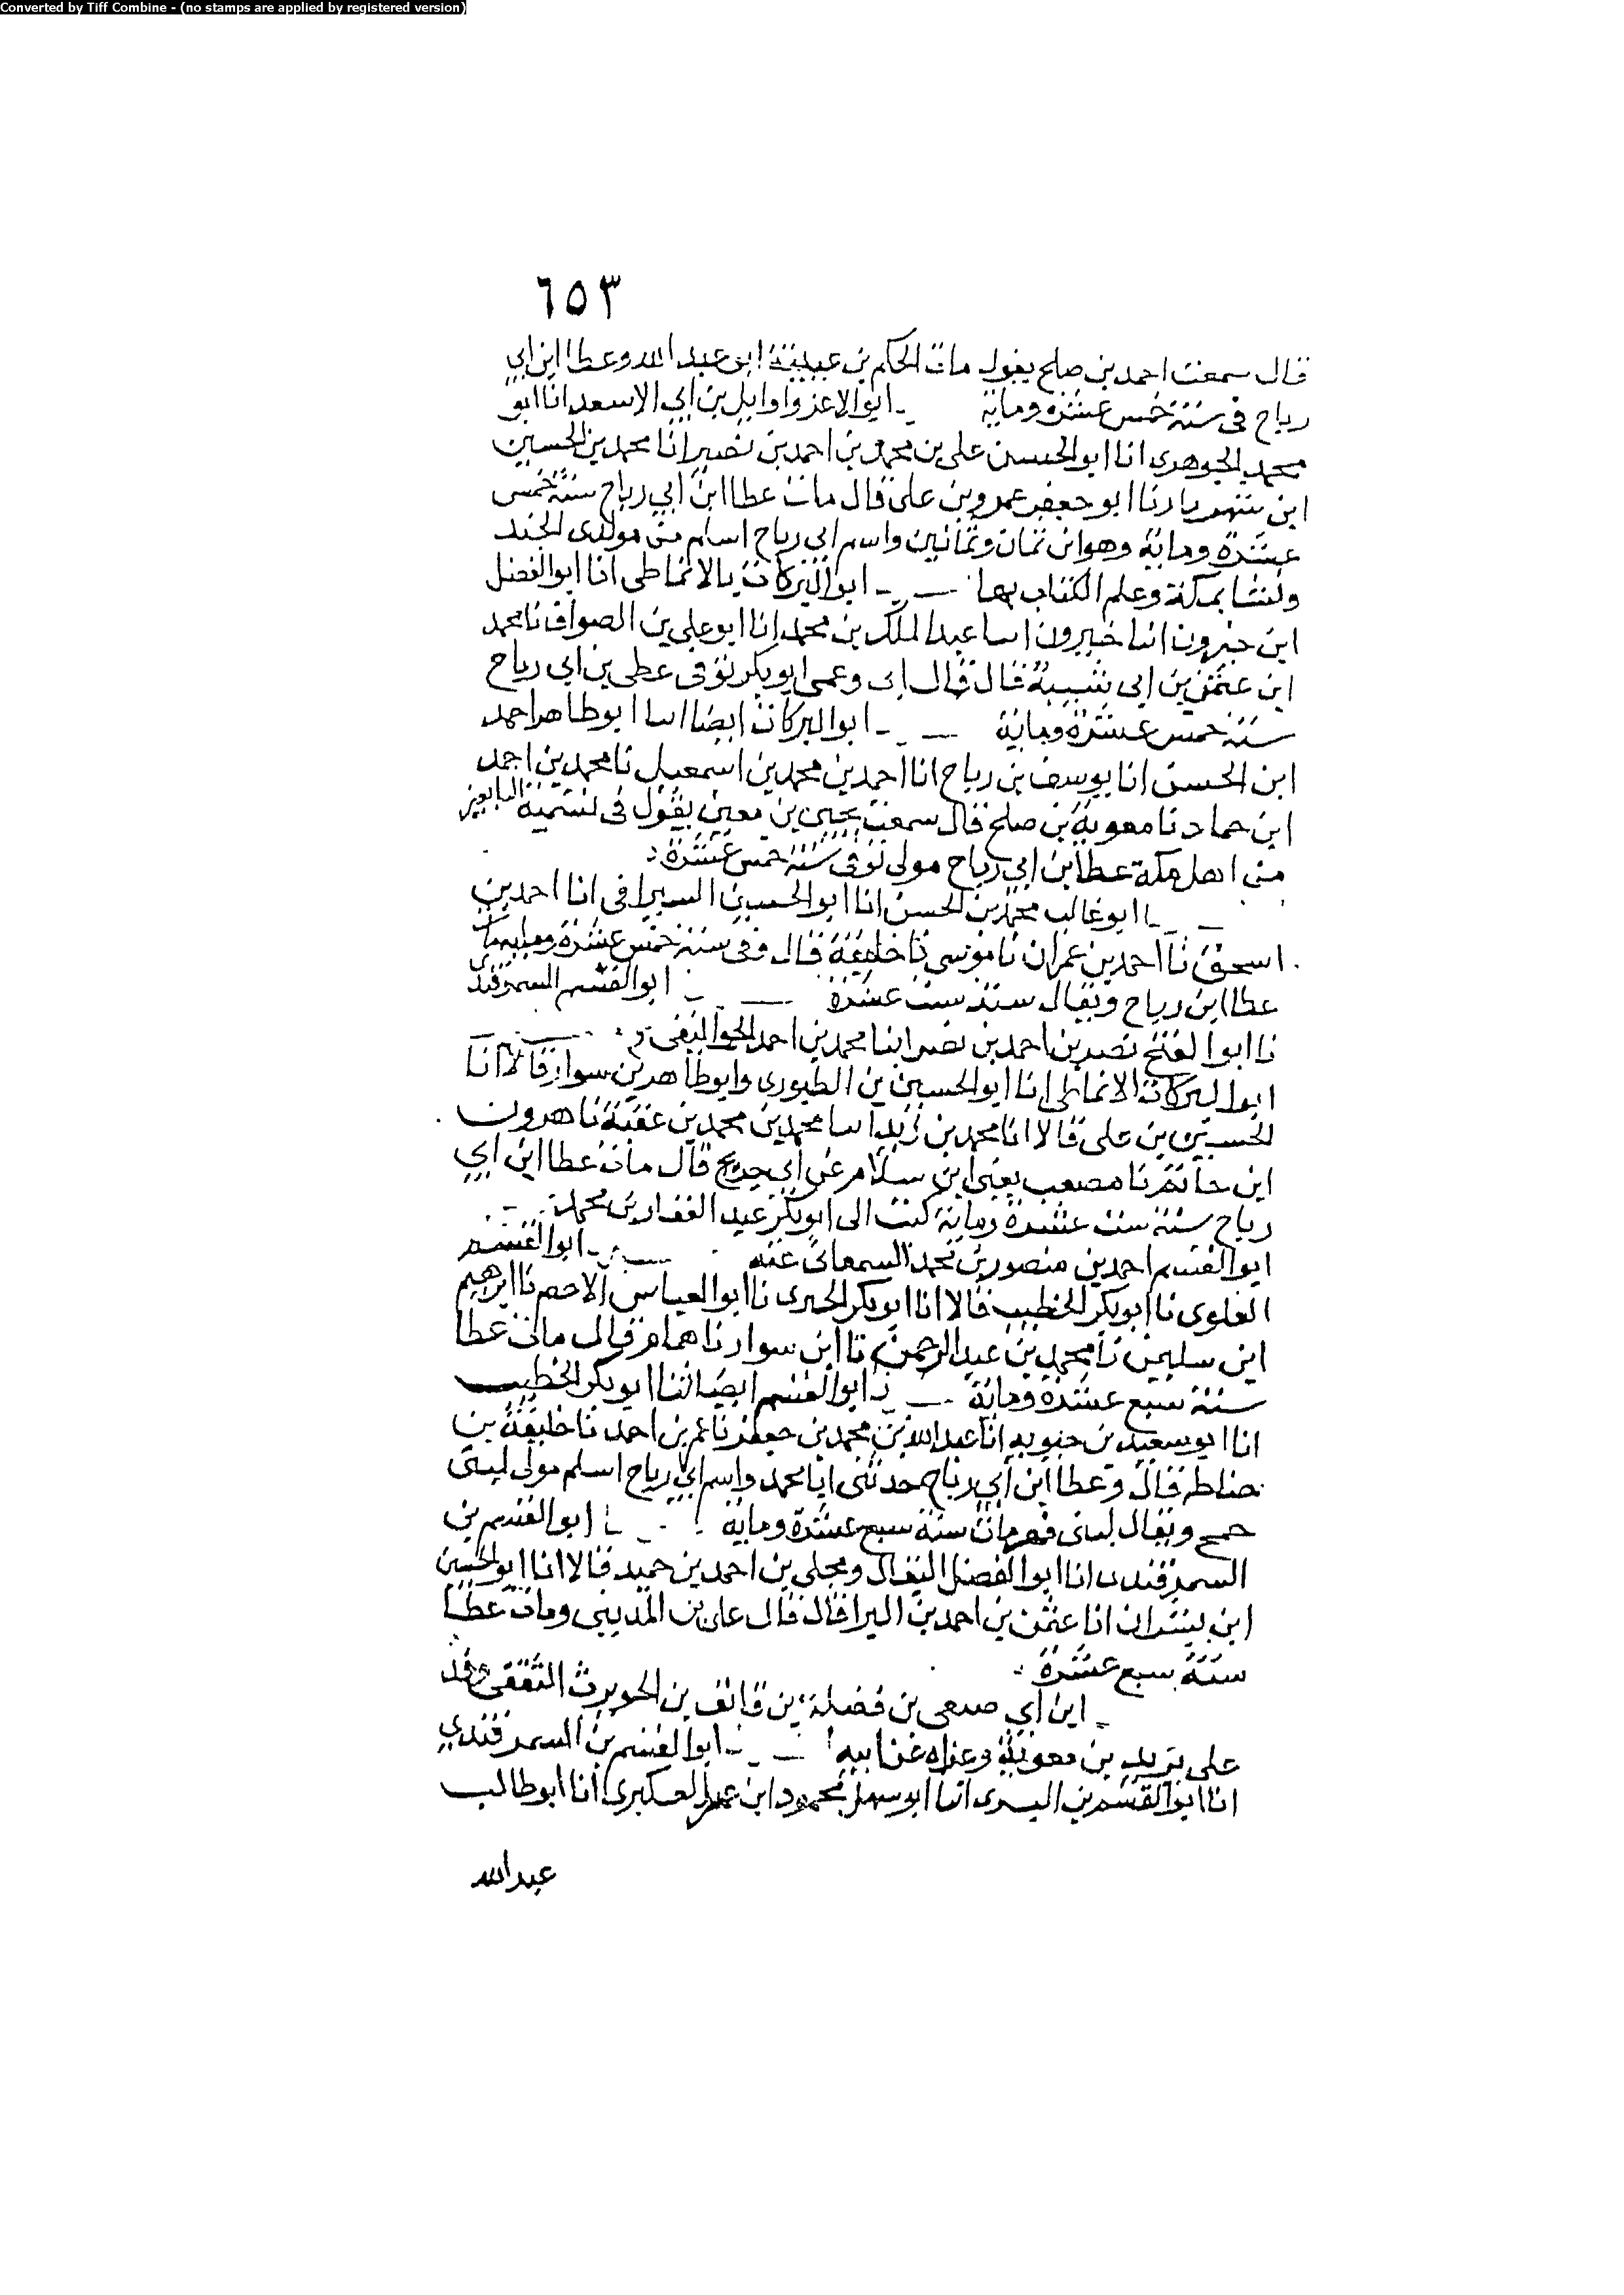 Converted by Tiff Combine - (no stamps are applied by registered version)
٦٥٣
قال سمعت احمد بن صلح يقول مات الحكم بن عيينة ابن عبد الله وعطا ابن ابي
رباح في سنة خمس عشرة وماية ابوا الاعز وا وايل بن ابي الاسعد انا ابو
محمد الجوهرى انا ابو الحسن على بن محمد بن احمد بن نصير انا محمد بن الحسين
ابن شهريار نا ابو حعفر عمرو بن على قال مات عطا ابن ابي رباح سنة خمس
عشرة وماية وهو ابن ثمان وثمانين واسم ابي رباح اسلم من مولدى الجند
ونشا بمكة وعلم الكتاب بها ابوا البركات يالانماطى انا ابو الفضل
ابن خيرون انا عبد الملك بن محمد انا ابو على بن الصواف نا محمد
ابن عثمن بن ابى شيبة قال قال ابى وعمى ابو بكر توفى عطى بن ابي رباح
سنة خمس عشرة وماية ابوا البركات ايضا انا ابو طاهر احمد
ابن الحسن انا يوسف بن رباح انا احمد بن محمد بن اسمعيل نا محمد بن احمد
ابن حماد نا معوية بن صلح قال سمعت يحيى بن معين يقول فى تسمية التابعين
من اهل مكة عطا بن ابي رباح مولى توفى سنة خمس عشرة
ابو غالب محمد بن الحسن انا ابو الحسين السيرافى انا احمد بن
اسحق نا احمد بن عمران نا موسى نا خليفة قال وفى سنة خمس عشرة وماية مات
عطا ابن رباح ويقال سنة ست عشرة ابو القسم السمرقندى
نا ابوا لفتح نصر بن احمد بن نصر ابنا محمد بن احمد الجواليقى
ابوا لبركات الانماطى انا ابو الحسين بن الطيورى وابو طاهر بن سوار قالا انا
الحسين بن على قالا انا محمد بن زيد انا محمد بن محمد بن عقبة نا هرون
ابن حاتم نا مصعب يعنى ابن سلام عن ابي جريج قال مات عطا ابن ابي
رباح سنة ست عشرة وماية كتب الى ابو بكر عبد الغفار بن محمد
ابو القسم احمد بن منصور بن محمد السمعانى عنه ابوا القسم
العلوى نا ابو بكر الخطيب قالا انا ابو بكر الحيرى نا ابو العباس الاصم نا ابرهيم
ابن سليمن نا محمد بن عبد الرحمن نا ابن سوار نا همام قال مات عطا
سنة سبع عشرة وماية ابوا القسم ايضا انا ابو بكر الخطيب
انا ابو سعيد بن حنويه انا عبد الله بن محمد بن جعفر نا عمر بن احمد نا خليفة بن
خياط قال وعطا ابن ابي رباح حدثنى ابا محمد واسم ابي رباح اسلم مولى لبنى
جمح ويقال لبنى فهر مات سنة سبع عشرة وماية ابو القسم بن
السمرقندى انا ابوا لفضل البقال ومجلى بن احمد بن حميد قالا انا ابو الحسن
ابن بشران انا عثمن بن احمد بن البرا قال قال على بن المدينى ومات عطا
سنة سبع عشرة
ابن ابي صيفى بن فضلة بن قانف بن الحويرث الثقفى وفد
على يزيد بن معوية وعزاه عن ابيه ابو القسم بن السمرقندي
انا ابوا القسم بن البسرى انا ابو سهل محمود ابن عمر العكبرى انا ابو طالب
عبد الله